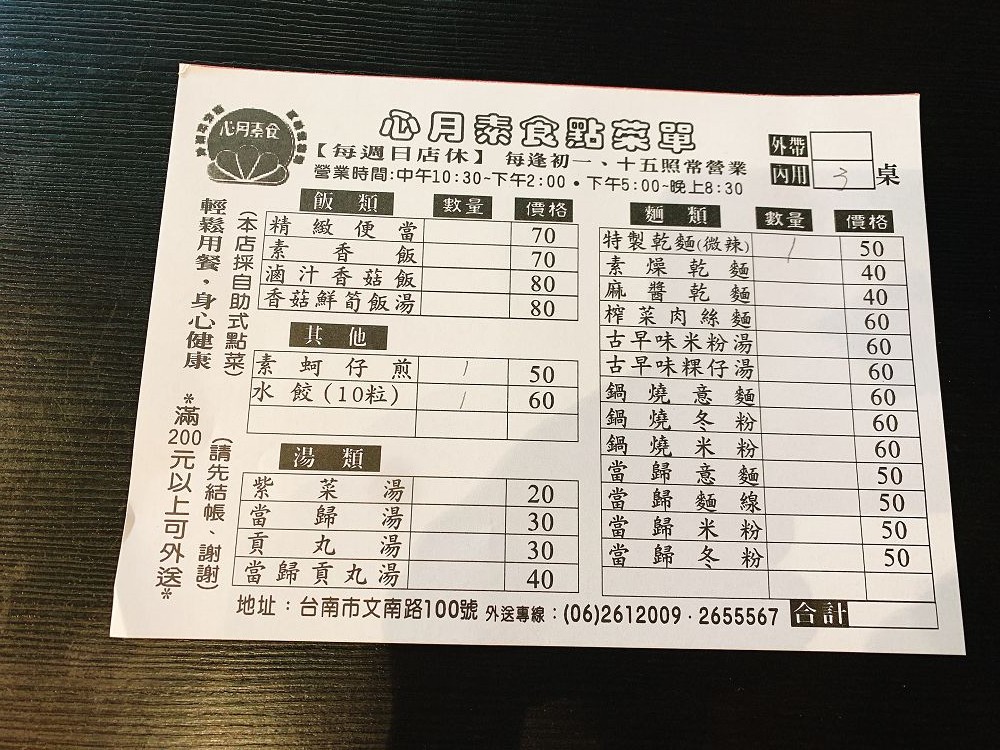 心月素食
心月素食點菜單
【每週日店休】 每逢初一、十五照常營業
營業時間:中午10:30~下午2:00•下午5:00~晚上8:30
外帶
內用 3 桌
輕鬆用餐•身心健康
(本店採自助式點菜)
*滿200元以上可外送*
(請先結帳、謝謝)
飯類 數量 價格
精緻便當 70
素香飯 70
滷汁香菇飯 80
香菇鮮筍飯湯 80
其他
素蚵仔煎 1 50
水餃(10粒) 1 60
湯類
紫菜湯 20
當歸湯 30
貢丸湯 30
當歸貢丸湯 40
麵類 數量 價格
特製乾麵(微辣) 1 50
素燥乾麵 40
麻醬乾麵 40
榨菜肉絲麵 60
古早味米粉湯 60
古早味粿仔湯 60
鍋燒意麵 60
鍋燒冬粉 60
鍋燒米粉 60
當歸意麵 50
當歸麵線 50
當歸米粉 50
當歸冬粉 50
合計
地址：台南市文南路100號 外送專線：(06)2612009·2655567